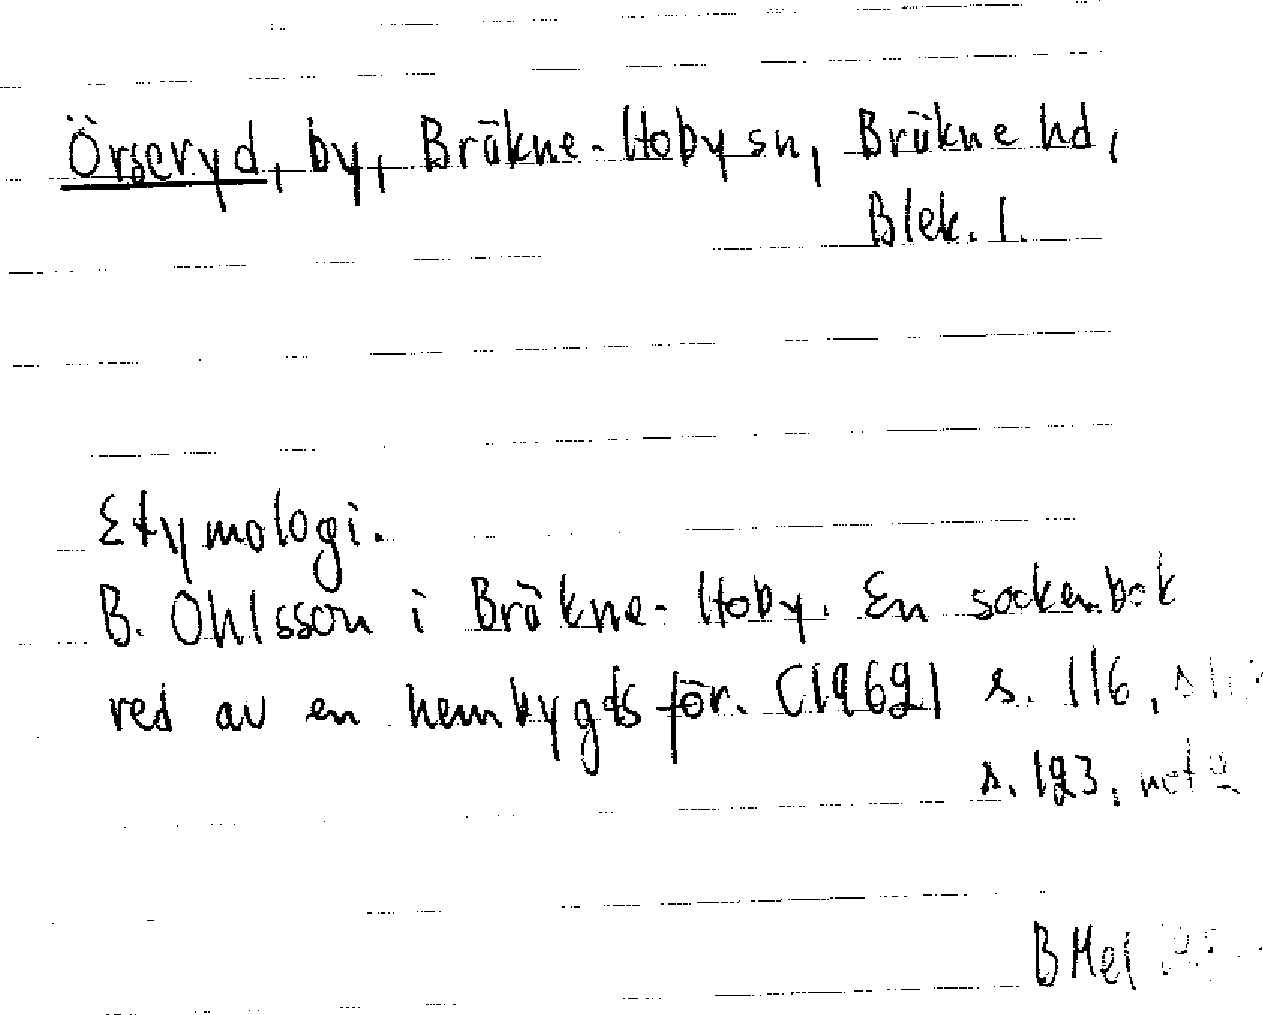 Örseryd, by, Bräkne-Hoby sn, Bräkne hd,
Blek. l.
Etymologi.
B. Ohlsson i Bräkne-Hoby. En sockenbok
red av en hembygdsför. (1962) s. 116,
s. 123, not 2
B Mel